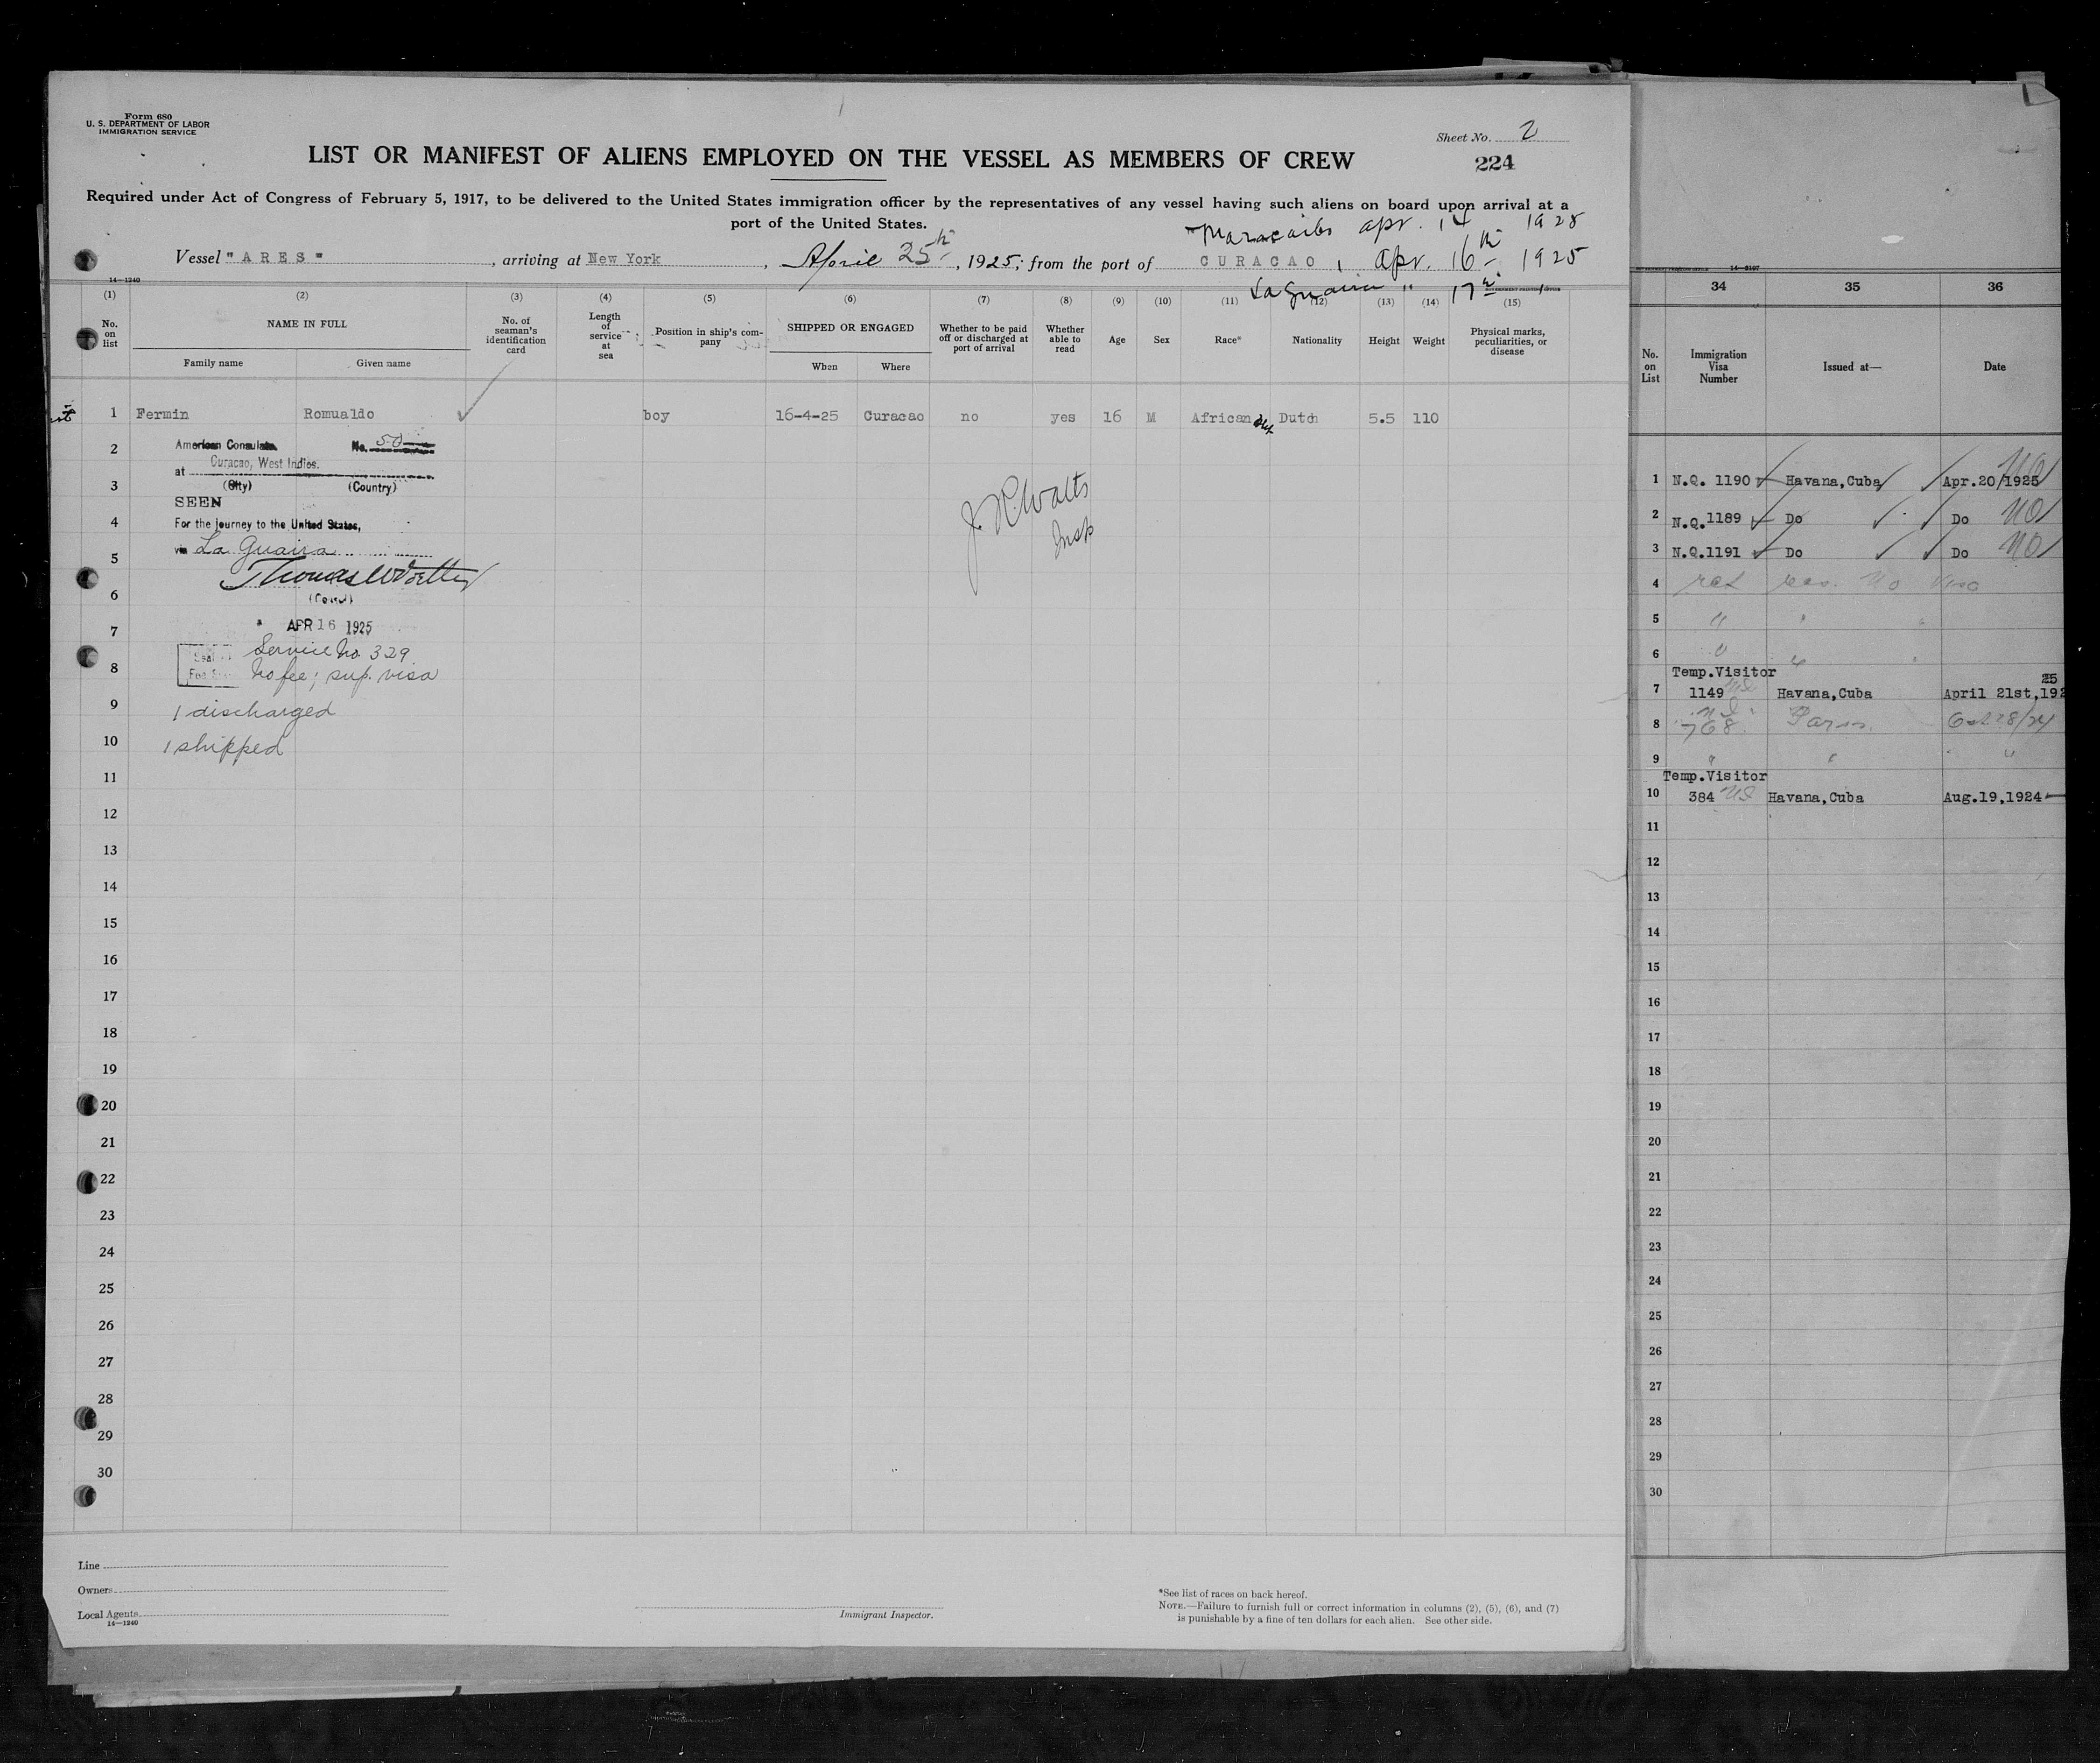 Form 680
U. S. DEPARTMENT OF LABOR
IMMIGRATION SERVICE
Sheet No. 2
LIST OR MANIFEST OF ALIENS EMPLOYED ON THE VESSEL AS MEMBERS OF CREW
224
Required under Act of Congress of February 5, 1917, to be delivered to the United States immigration officer by the representatives of any vessel having such aliens on board upon arrival at a
port of the United States.
Maracaibo apr. 14 1925
Vessel "ARES", arriving at New York, April 25th, 1925, from the port of CURACAO, apr. 16th 1925
La Guaira " 17th
14—1240
(1) (2) (3) (4) (5) (6) (7) (8) (9) (10) (11) (12) (13) (14) (15)
No. on list
NAME IN FULL
Family name Given name
No. of seaman's identification card
Length of service at sea
Position in ship's company
SHIPPED OR ENGAGED
When Where
Whether to be paid off or discharged at port of arrival
Whether able to read
Age
Sex
Race*
Nationality
Height
Weight
Physical marks, peculiarities, or disease
1 Fermin Romualdo boy 16-4-25 Curacao no yes 16 M African Dutch 5.5 110
2 American Consulate No. 50
at Curacao, West Indies.
3 (City) (Country)
SEEN
4 For the journey to the United States,
via La Guaira
5
6
7 APR 16 1925
Service No. 329
8 No fee; sup. visa
9 1 discharged
10 1 shipped
J. R. Watts
Insp
11
12
13
14
15
16
17
18
19
20
21
22
23
24
25
26
27
28
29
30
Line
Owners
Local Agents
14—1240
Immigrant Inspector.
*See list of races on back hereof.
NOTE.—Failure to furnish full or correct information in columns (2), (5), (6), and (7)
is punishable by a fine of ten dollars for each alien. See other side.
34 35 36
No. on List
Immigration Visa Number
Issued at—
Date
1 N.Q. 1190 Havana,Cuba Apr.20/1925
2 N.Q.1189 Do Do
3 N.Q.1191 Do Do
4 No Visa
5 "
6
Temp.Visitor
7 1149 Havana,Cuba April 21st,1925
8 768 Paris Oct 28/24
9 " " "
Temp.Visitor
10 384 Havana,Cuba Aug.19,1924
11
12
13
14
15
16
17
18
19
20
21
22
23
24
25
26
27
28
29
30